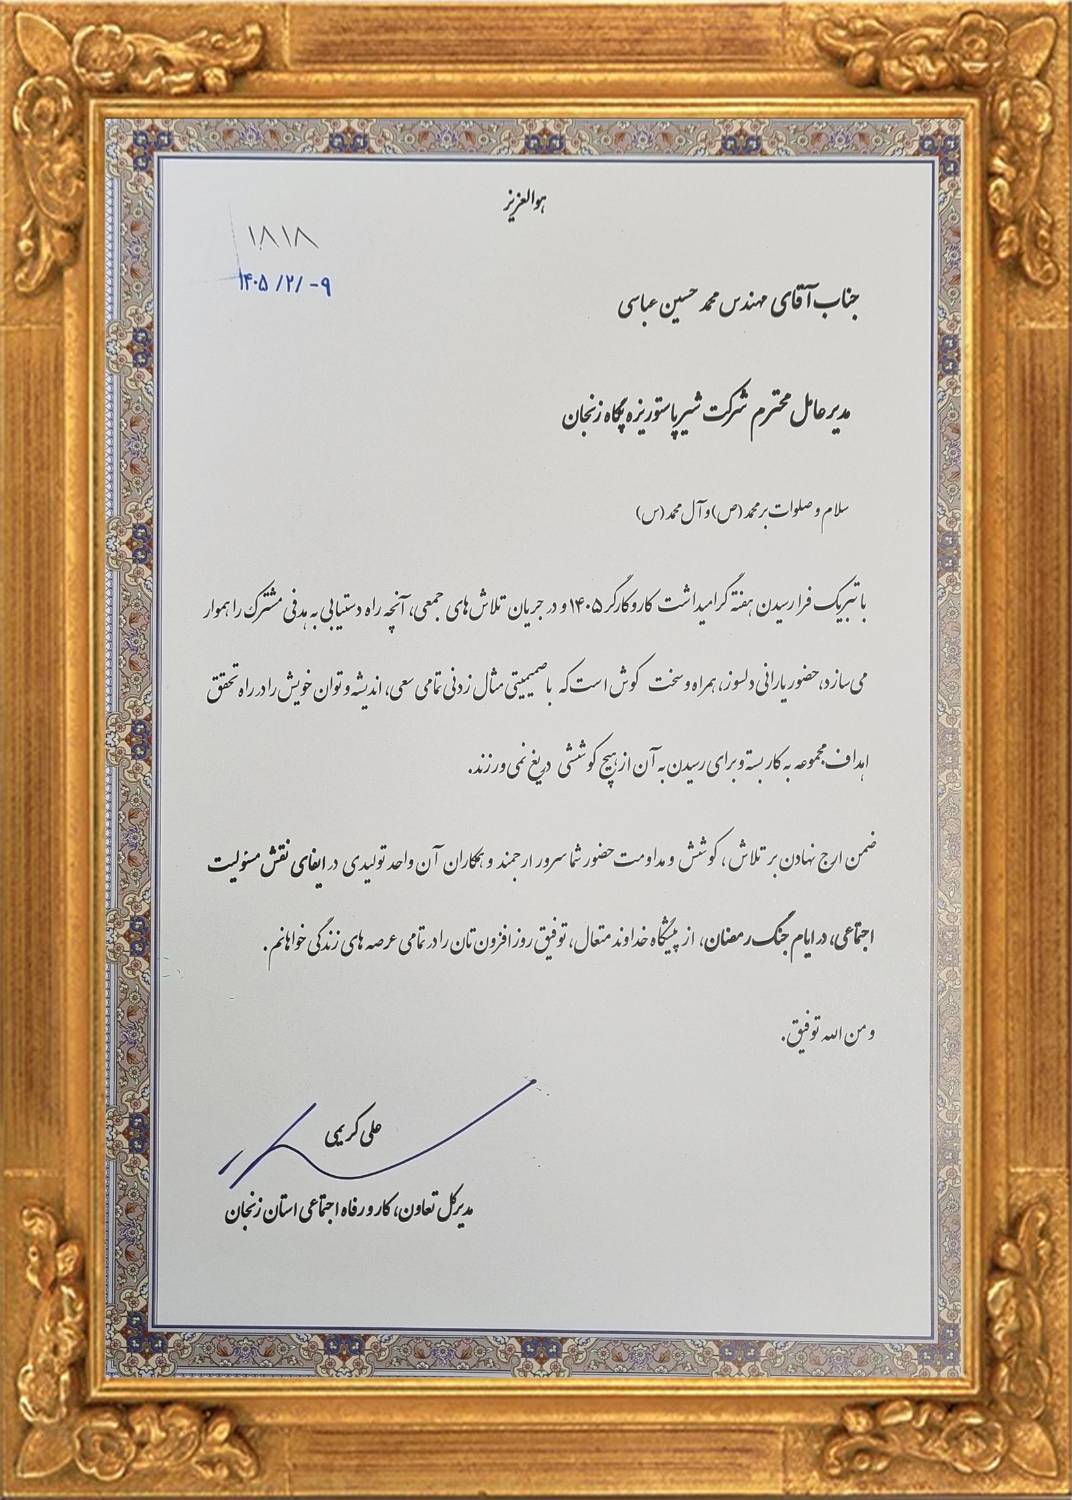 هوالعزیز
۱۸۱۸
۱۴۰۵/۲/-۹
جناب آقای مهندس محمد حسین عباسی
مدیرعامل محترم شرکت شیر پاستوریزه پگاه زنجان
سلام و صلوات بر محمد (ص) و آل محمد (س)
با تبریک فرا رسیدن هفته گرامیداشت کار و کارگر ۱۴۰۵ و در جریان تلاش های جمعی، آنچه راه دستیابی به هدفی مشترک را هموار
می سازد، حضور یارانی دلسوز، همراه و سخت کوش است که با صمیمیتی مثال زدنی تمامی سعی، اندیشه و توان خویش را در راه تحقق
اهداف مجموعه به کار بسته و برای رسیدن به آن از هیچ کوششی دریغ نمی ورزند.
ضمن ارج نهادن بر تلاش، کوشش و مداومت حضور شما سرور ارجمند و همکاران آن واحد تولیدی در ایفای نقش مسئولیت
اجتماعی، در ایام جنگ رمضان، از پیشگاه خداوند متعال، توفیق روز افزون تان را در تمامی عرصه های زندگی خواهانم.
و من الله توفیق.
علی کریمی
مدیرکل تعاون، کار و رفاه اجتماعی استان زنجان